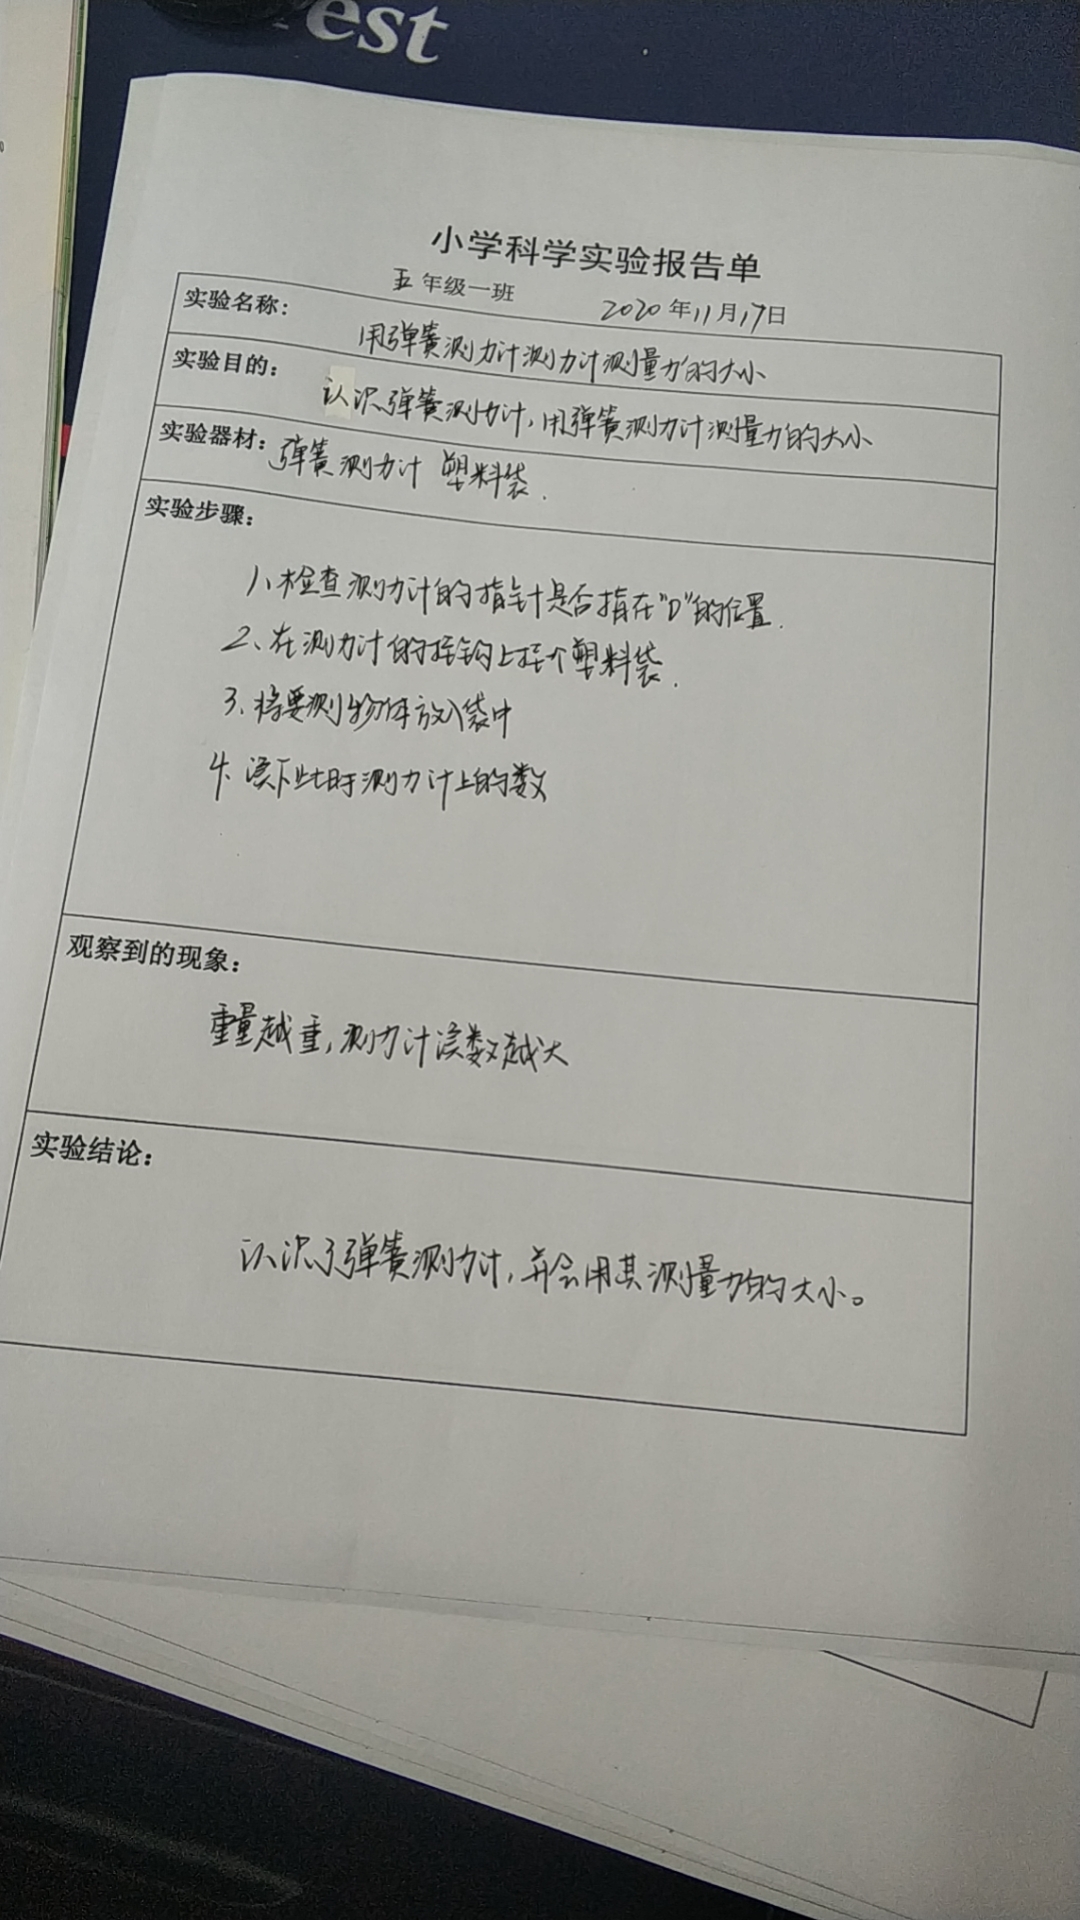 rest
小学科学实验报告单
五年级一班 2020年11月17日
实验名称:
用弹簧测力计测力计测量力的大小
实验目的:
认识弹簧测力计,用弹簧测力计测量力的大小
实验器材: 弹簧测力计 塑料袋.
实验步骤:
1、检查测力计的指针是否指在"0"的位置.
2、在测力计的挂钩上挂个塑料袋.
3、将要测物体放入袋中
4、读下此时测力计上的数
观察到的现象:
重量越重,测力计读数越大
实验结论:
认识了弹簧测力计,并会用其测量力的大小。